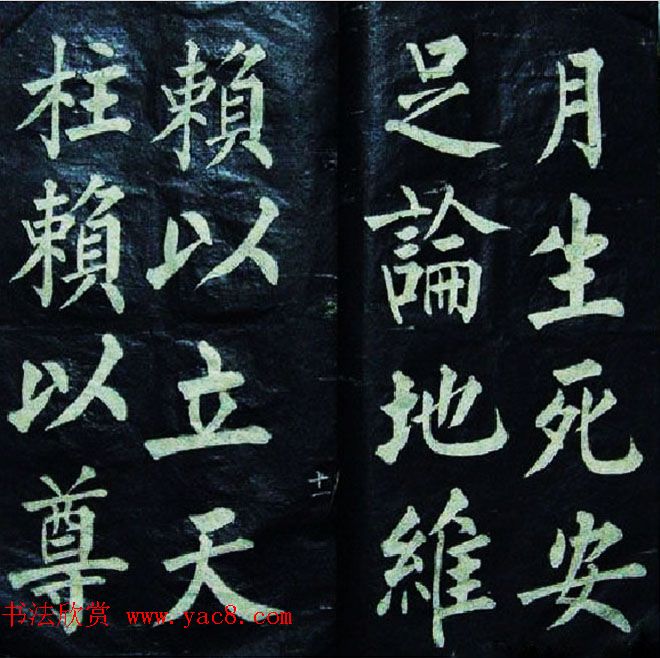 月生死安
足論地維
賴以立天
柱賴以尊
十一
书法欣赏 www.yac8.com